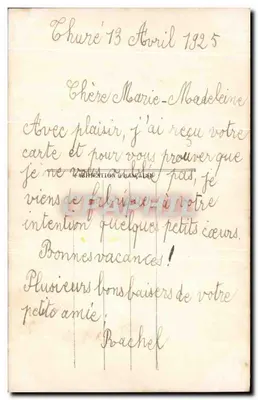 Thuré 13 Avril 1925
Chère Marie-Madeleine
Avec plaisir, j'ai reçu votre
carte et pour vous prouver que
je ne vous pas, je
viens à votre
intention quelques petits cœurs.
Bonnes vacances!
Plusieurs bons baisers de votre
petite amie.
Rachel